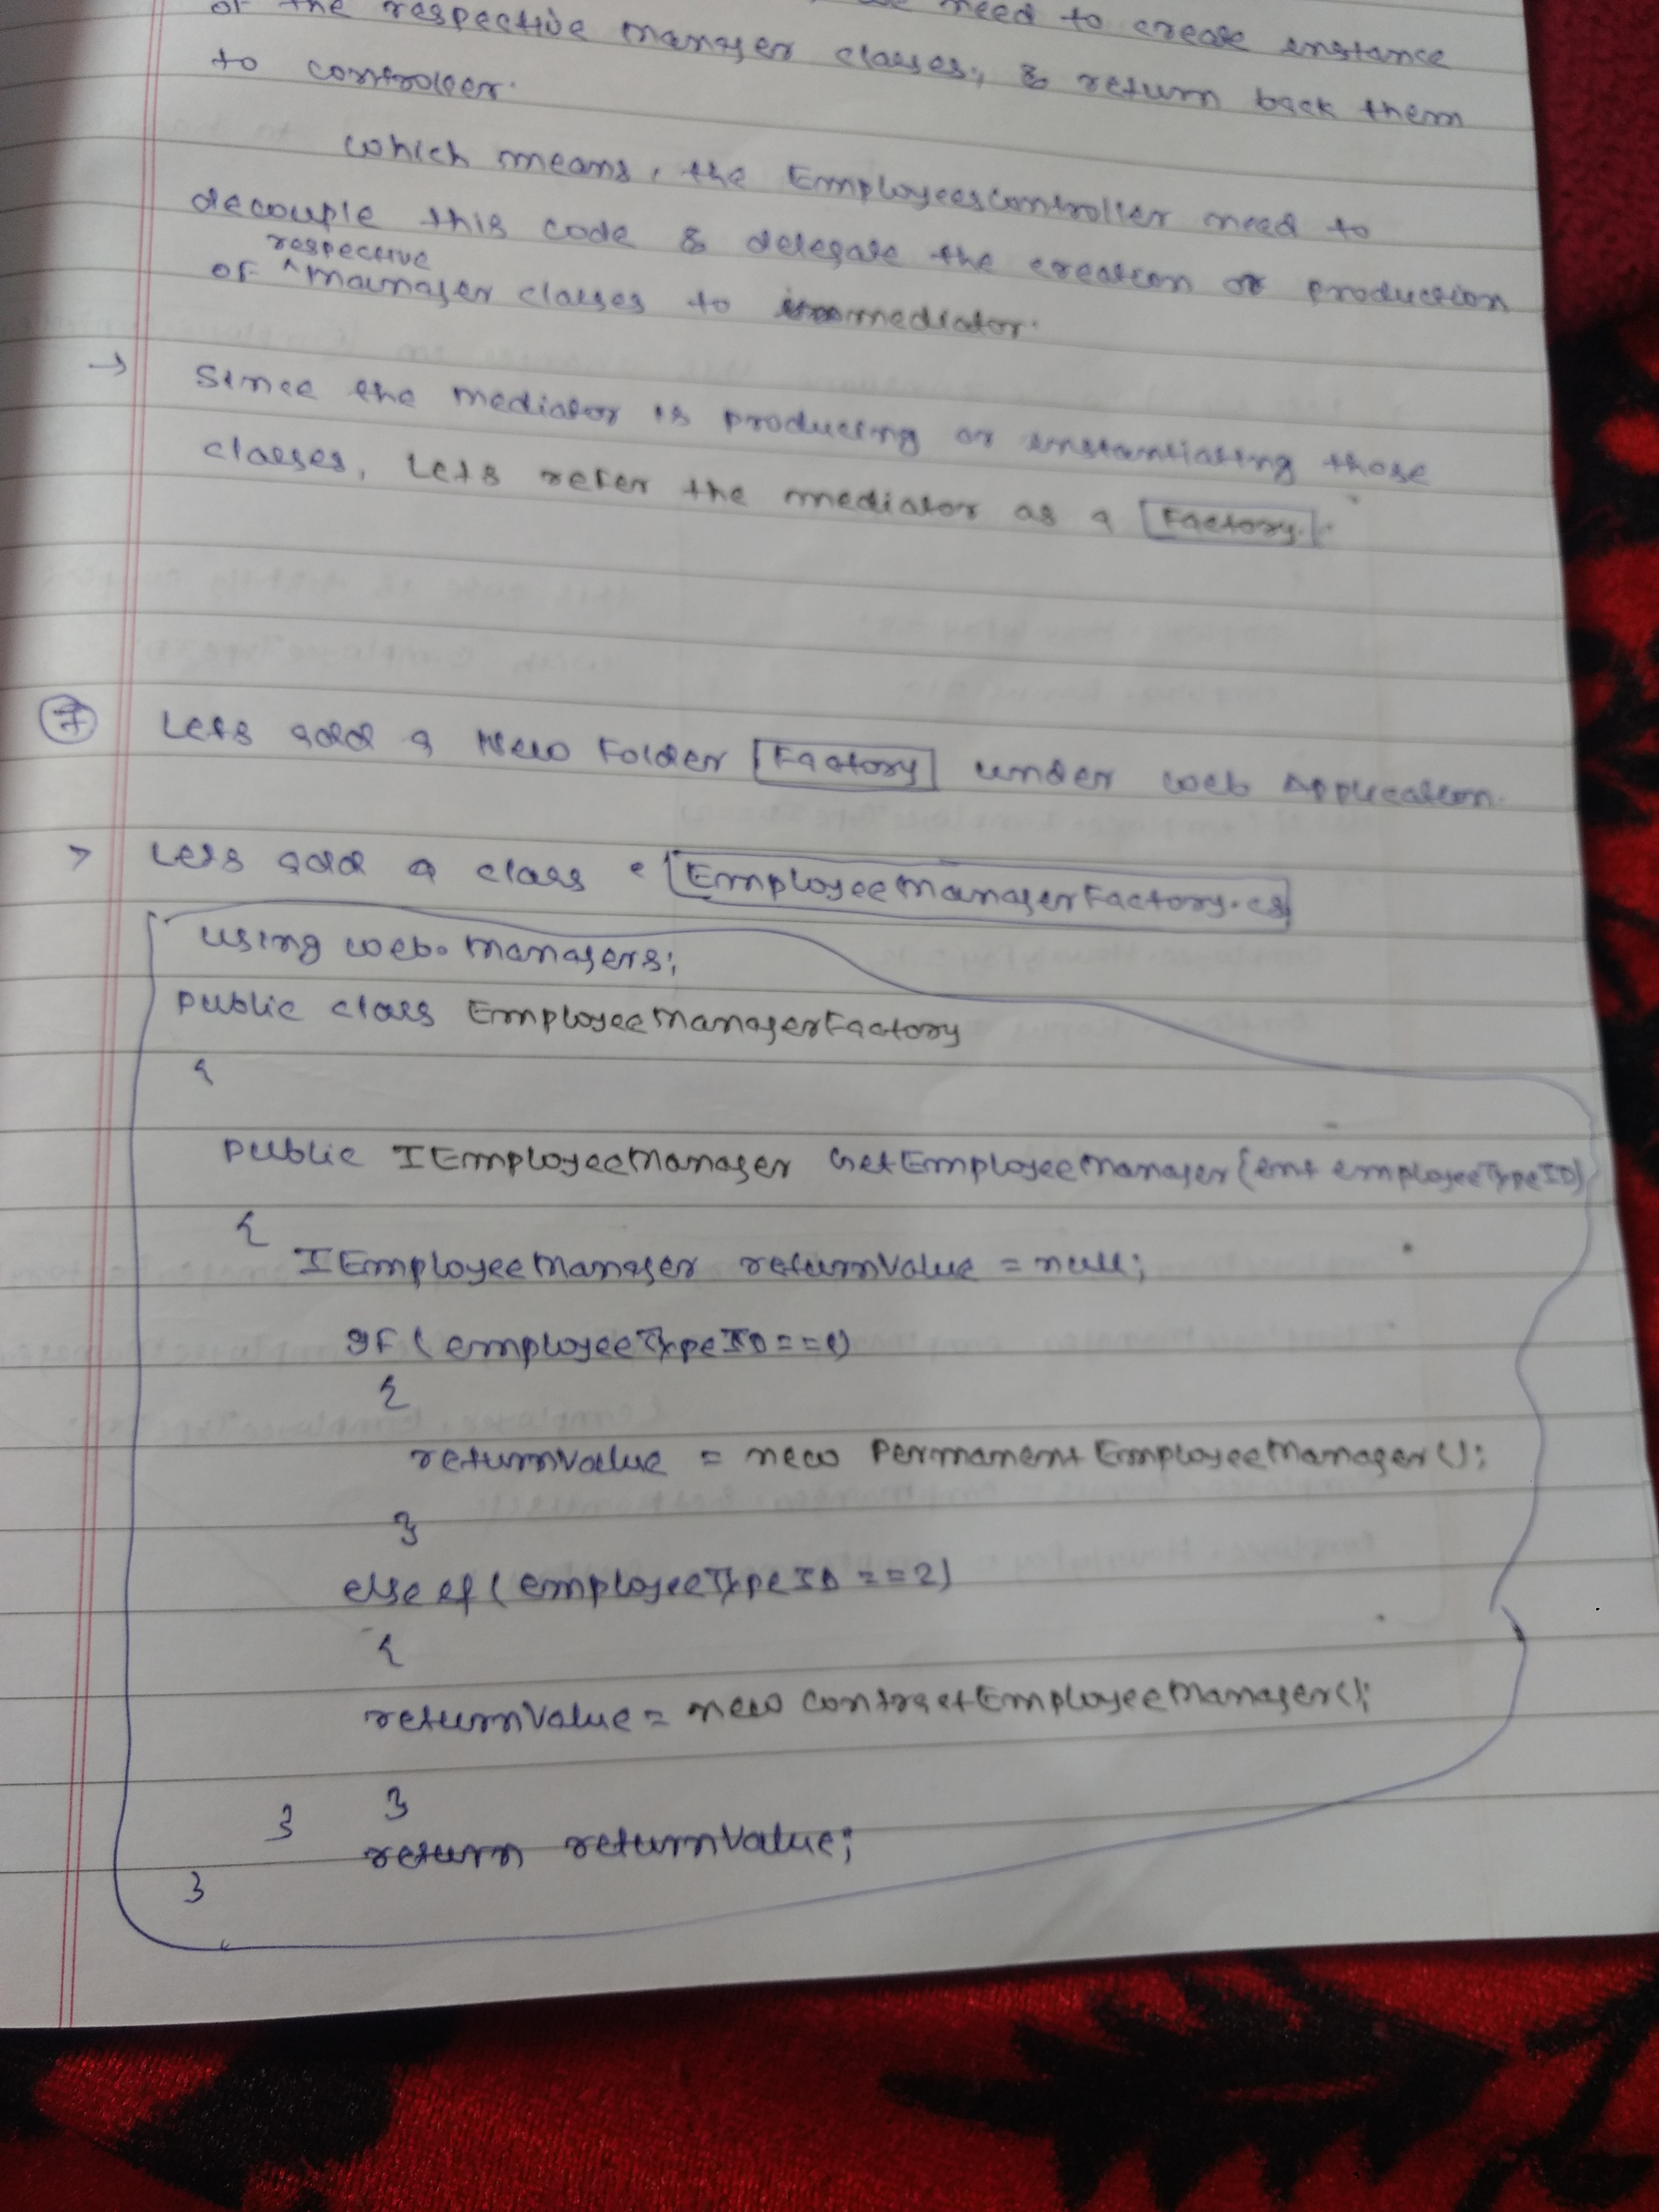 of the respective manager classes, & return back them
need to create instance
to controller.
which means, the EmployeesController need to
decouple this code & delegate the creation or production
respective
of ^ manager classes to mediator.
→ Since the mediator is producing or instantiating those
classes, Lets refer the mediator as a Factory.
7 Lets add a New Folder Factory under web Application.
> Lets add a class EmployeeManagerFactory.cs
using web.Managers;
public class EmployeeManagerFactory
{
public IEmployeeManager GetEmployeeManager(int employeeTypeID)
{
IEmployeeManager returnValue = null;
if (employeeTypeID==1)
{
returnValue = new PermanentEmployeeManager();
}
else if (employeeTypeID==2)
{
returnValue = new ContractEmployeeManager();
}
return returnValue;
}
}